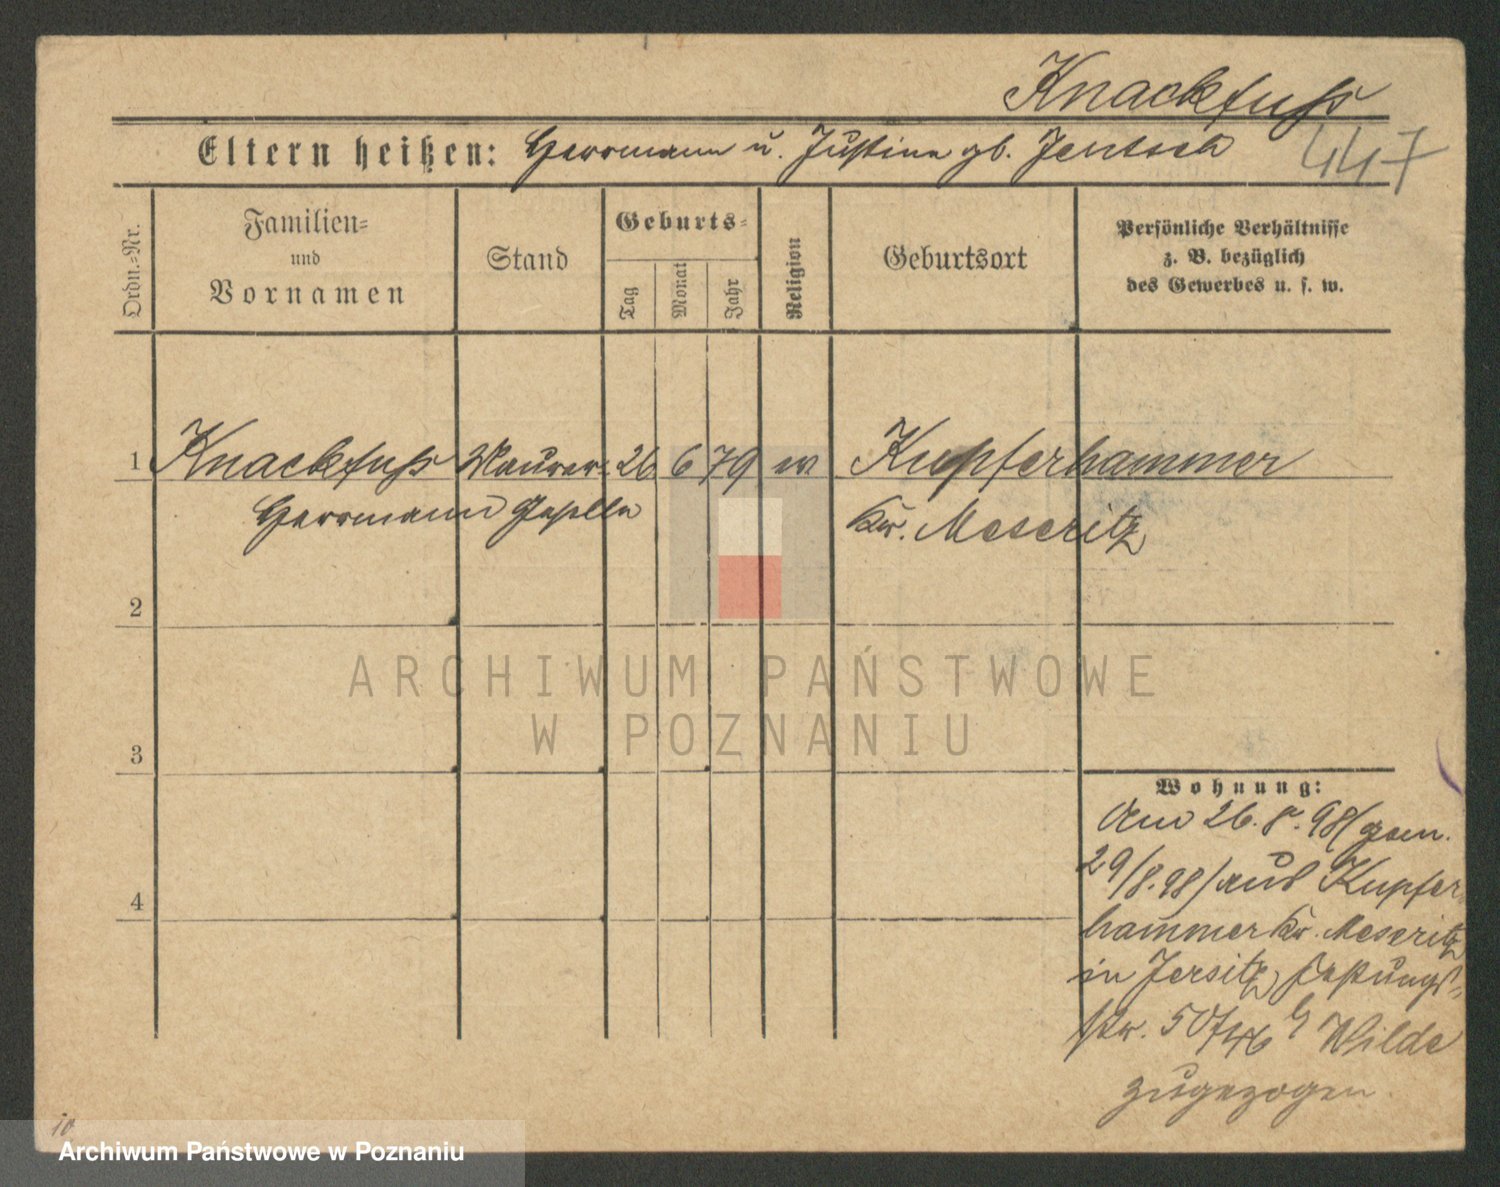 Knackfuß
Eltern heißen: Herrmann u. Justine gb. Jentsch
447
Ordn.-Nr.
Familien-
und
Vornamen
Stand
Geburts-
Tag
Monat
Jahr
Religion
Geburtsort
Persönliche Verhältnisse
z. B. bezüglich
des Gewerbes u. s. w.
1 Knackfuß Maurer- 26 6 79 Kupferhammer
Herrmann Geselle Kr. Meseritz
2
3
4
ARCHIWUM PAŃSTWOWE
W POZNANIU
Wohnung:
Am 26. 8. 98 (gem.
29/8. 98) aus Kupfer
hammer Kr. Meseritz
in Jersitz, Festungs-
str. Wilde
zugezogen.
Archiwum Państwowe w Poznaniu